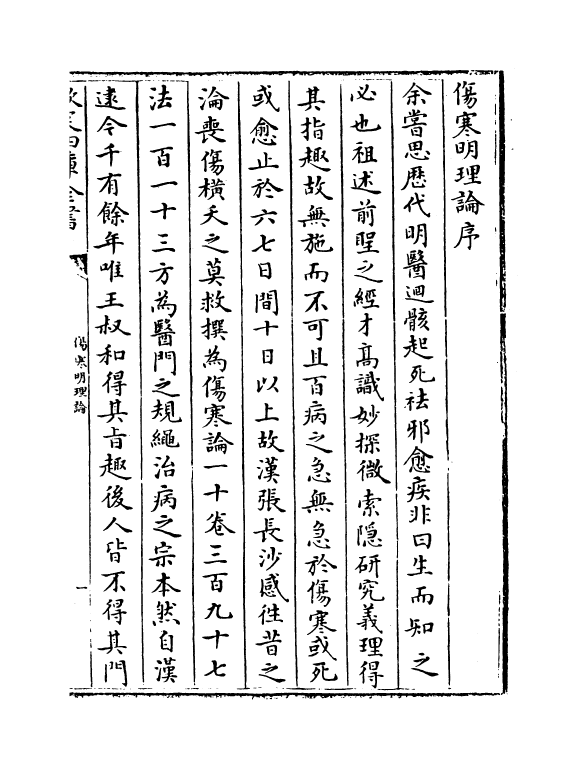 傷寒明理論序
余嘗思歷代明醫迴骸起死祛邪愈疾非曰生而知之
必也祖述前聖之經才髙識妙探微索隐研究義理得
其指趣故無施而不可且百病之急無急於傷寒或死
或愈止於六七日間十日以上故漢張長沙感徃昔之
淪喪傷橫夭之莫救撰為傷寒論一十卷三百九十七
法一百一十三方為醫門之規繩治病之宗本然自漢
逮今千有餘年唯王叔和得其旨趣後人皆不得其門
欽定四庫全書
傷寒明理論
一